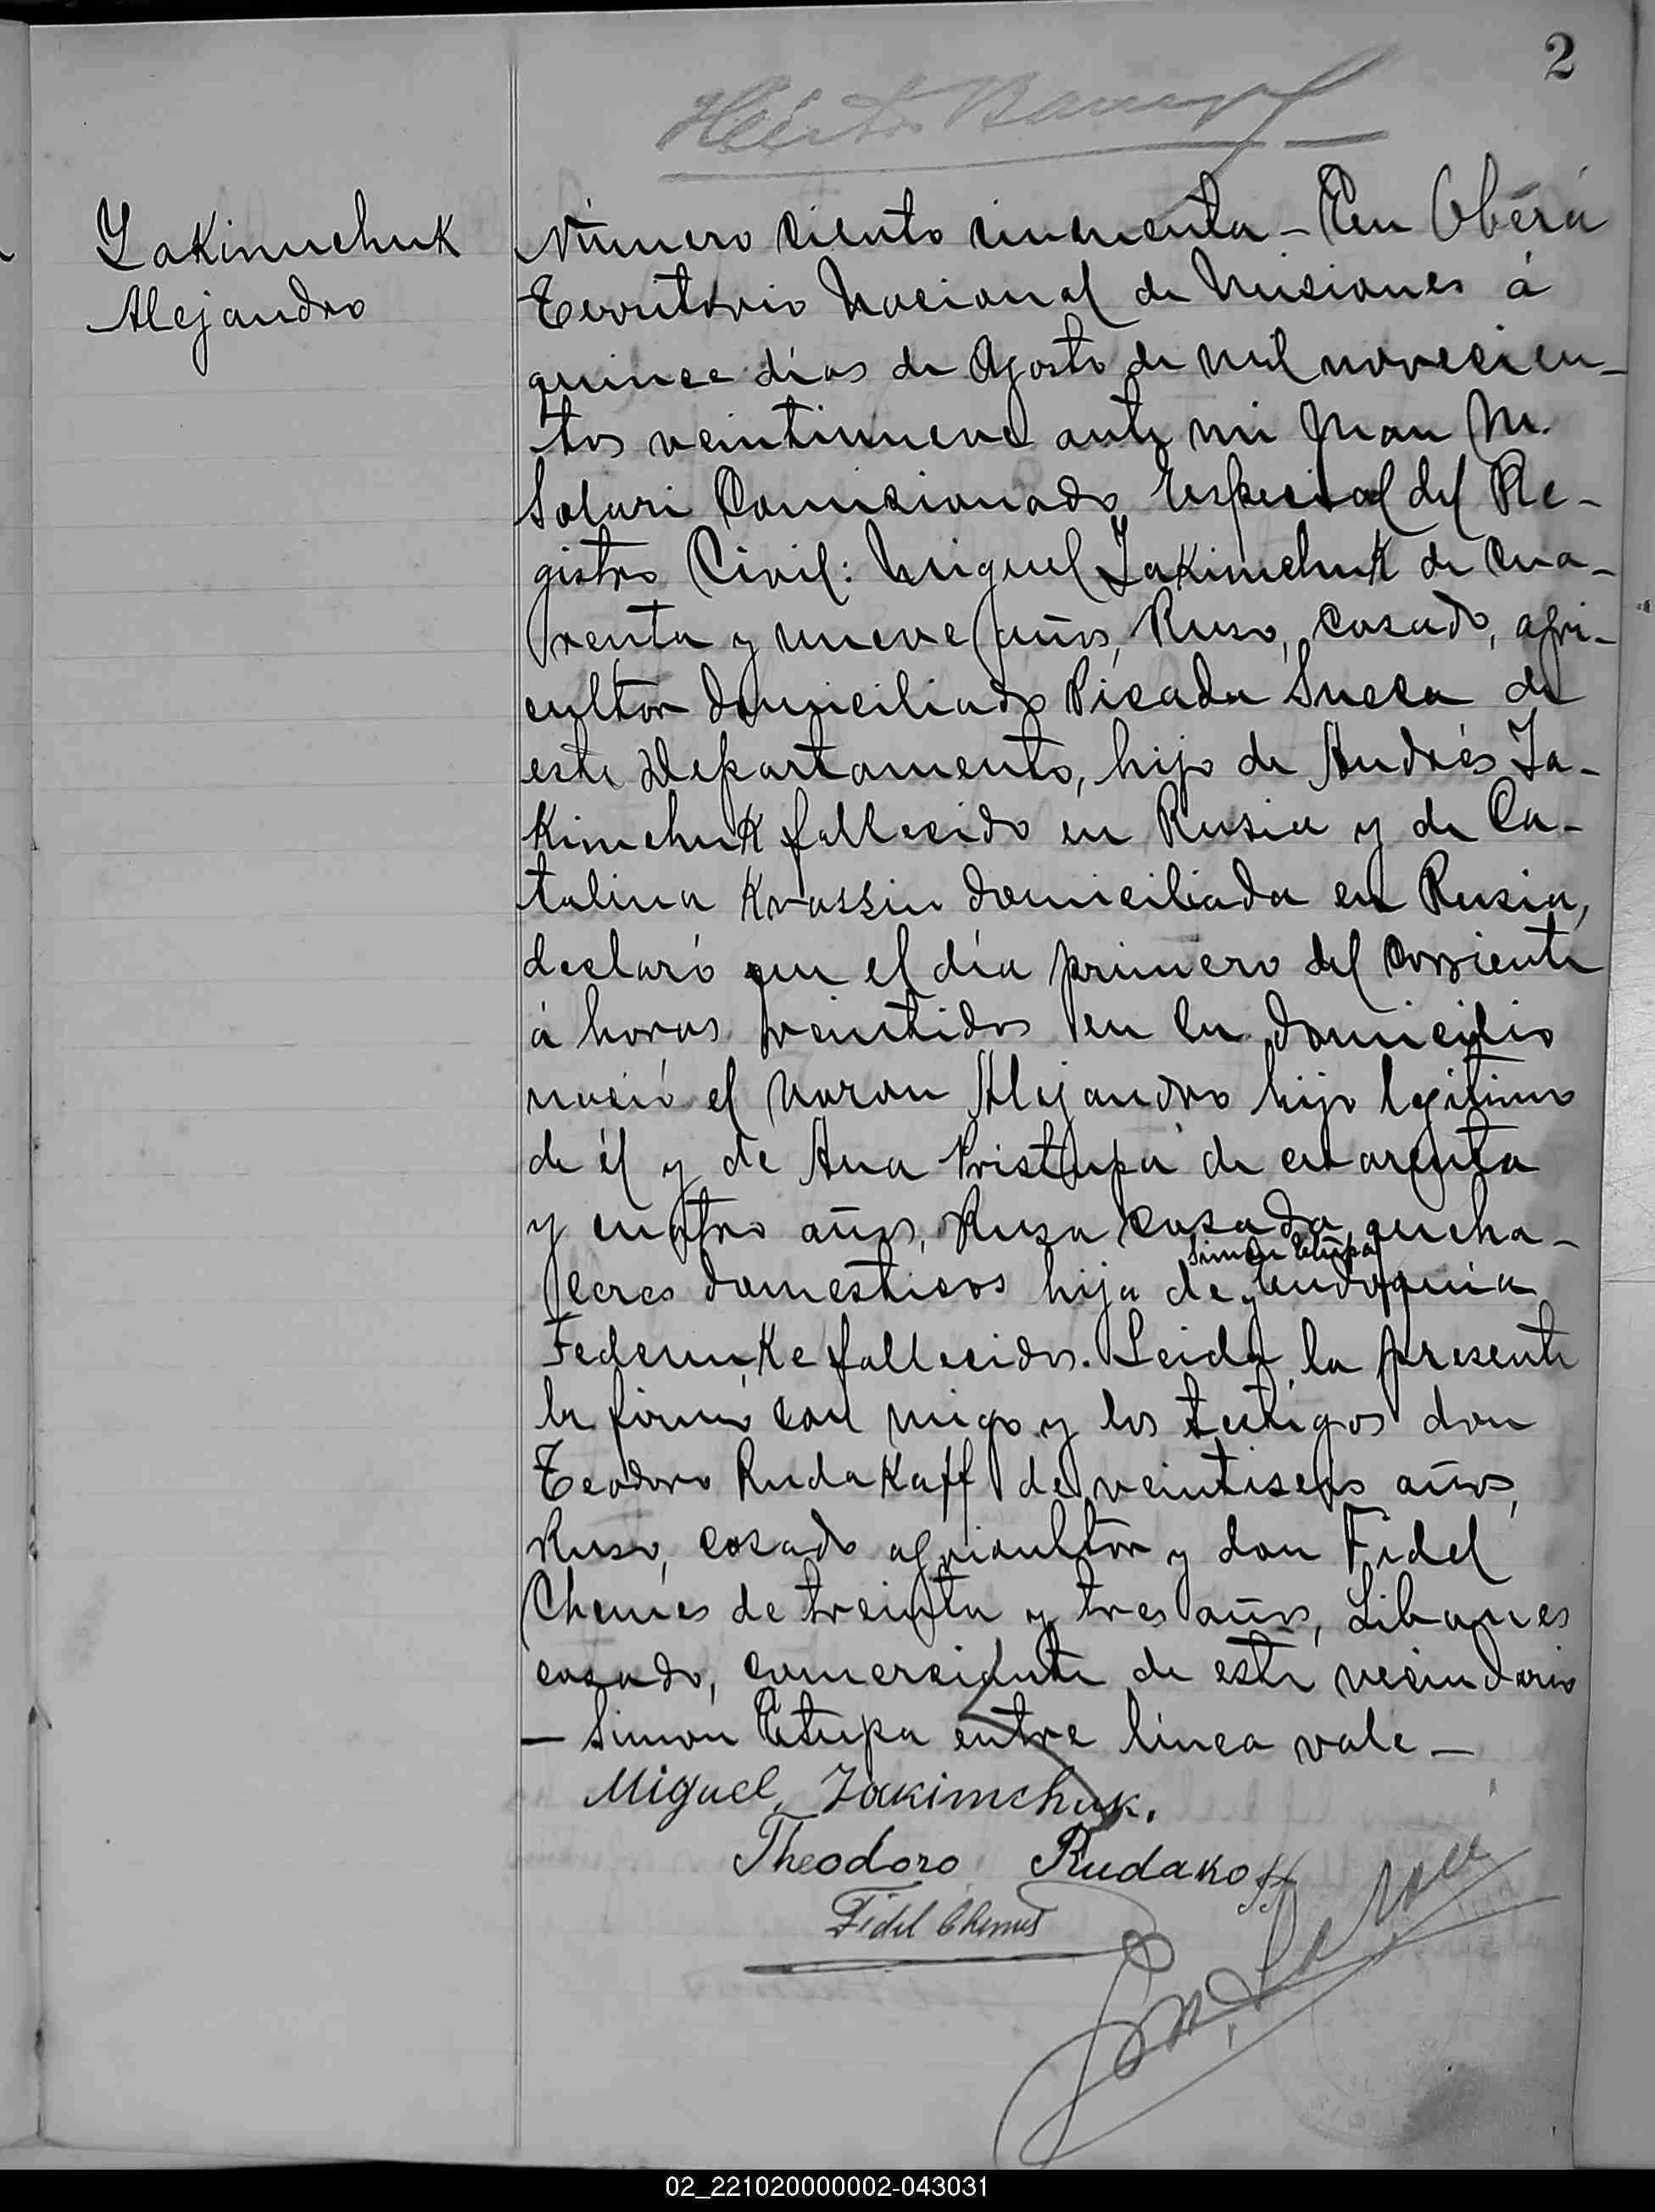 2
Zakimchuk
Alejandro
Número ciento cincuenta - En Oberá
Territorio Nacional de Misiones á
quince días de Agosto de mil novecien-
tos veintinueve ante mi Juan M.
Solari Comisionado Especial del Re-
gistro Civil: Miguel Zakimchuk de cua-
renta y nueve años, Ruso, casado, agri-
cultor domiciliado Picada Sueca de
este Departamento, hijo de Andrés Za-
Kimchuk fallecido en Rusia y de Ca-
talina Krassin domiciliada en Rusia,
declaró que el día primero del corriente
á horas veintidos en su domicilio
nació el varon Alejandro hijo legitimo
de él y de Ana Pristupa de cuarenta
y cuatro años, Rusa casada, queha-
Simon Etupa
ceres domesticos hija de y
fallecidos. Leida la presente
la firmó con migo y los testigos don
Teodoro Rudakoff de veintiseis años,
Ruso, casado agricultor y don Fidel
Chemes de treinta y tres años, Libanes
casado, comerciante de este vecindario
- Simon Etupa entre línea vale -
Miguel Jakimchuk.
Theodoro Rudakoff
Fidel Chemes
02_221020000002-043031